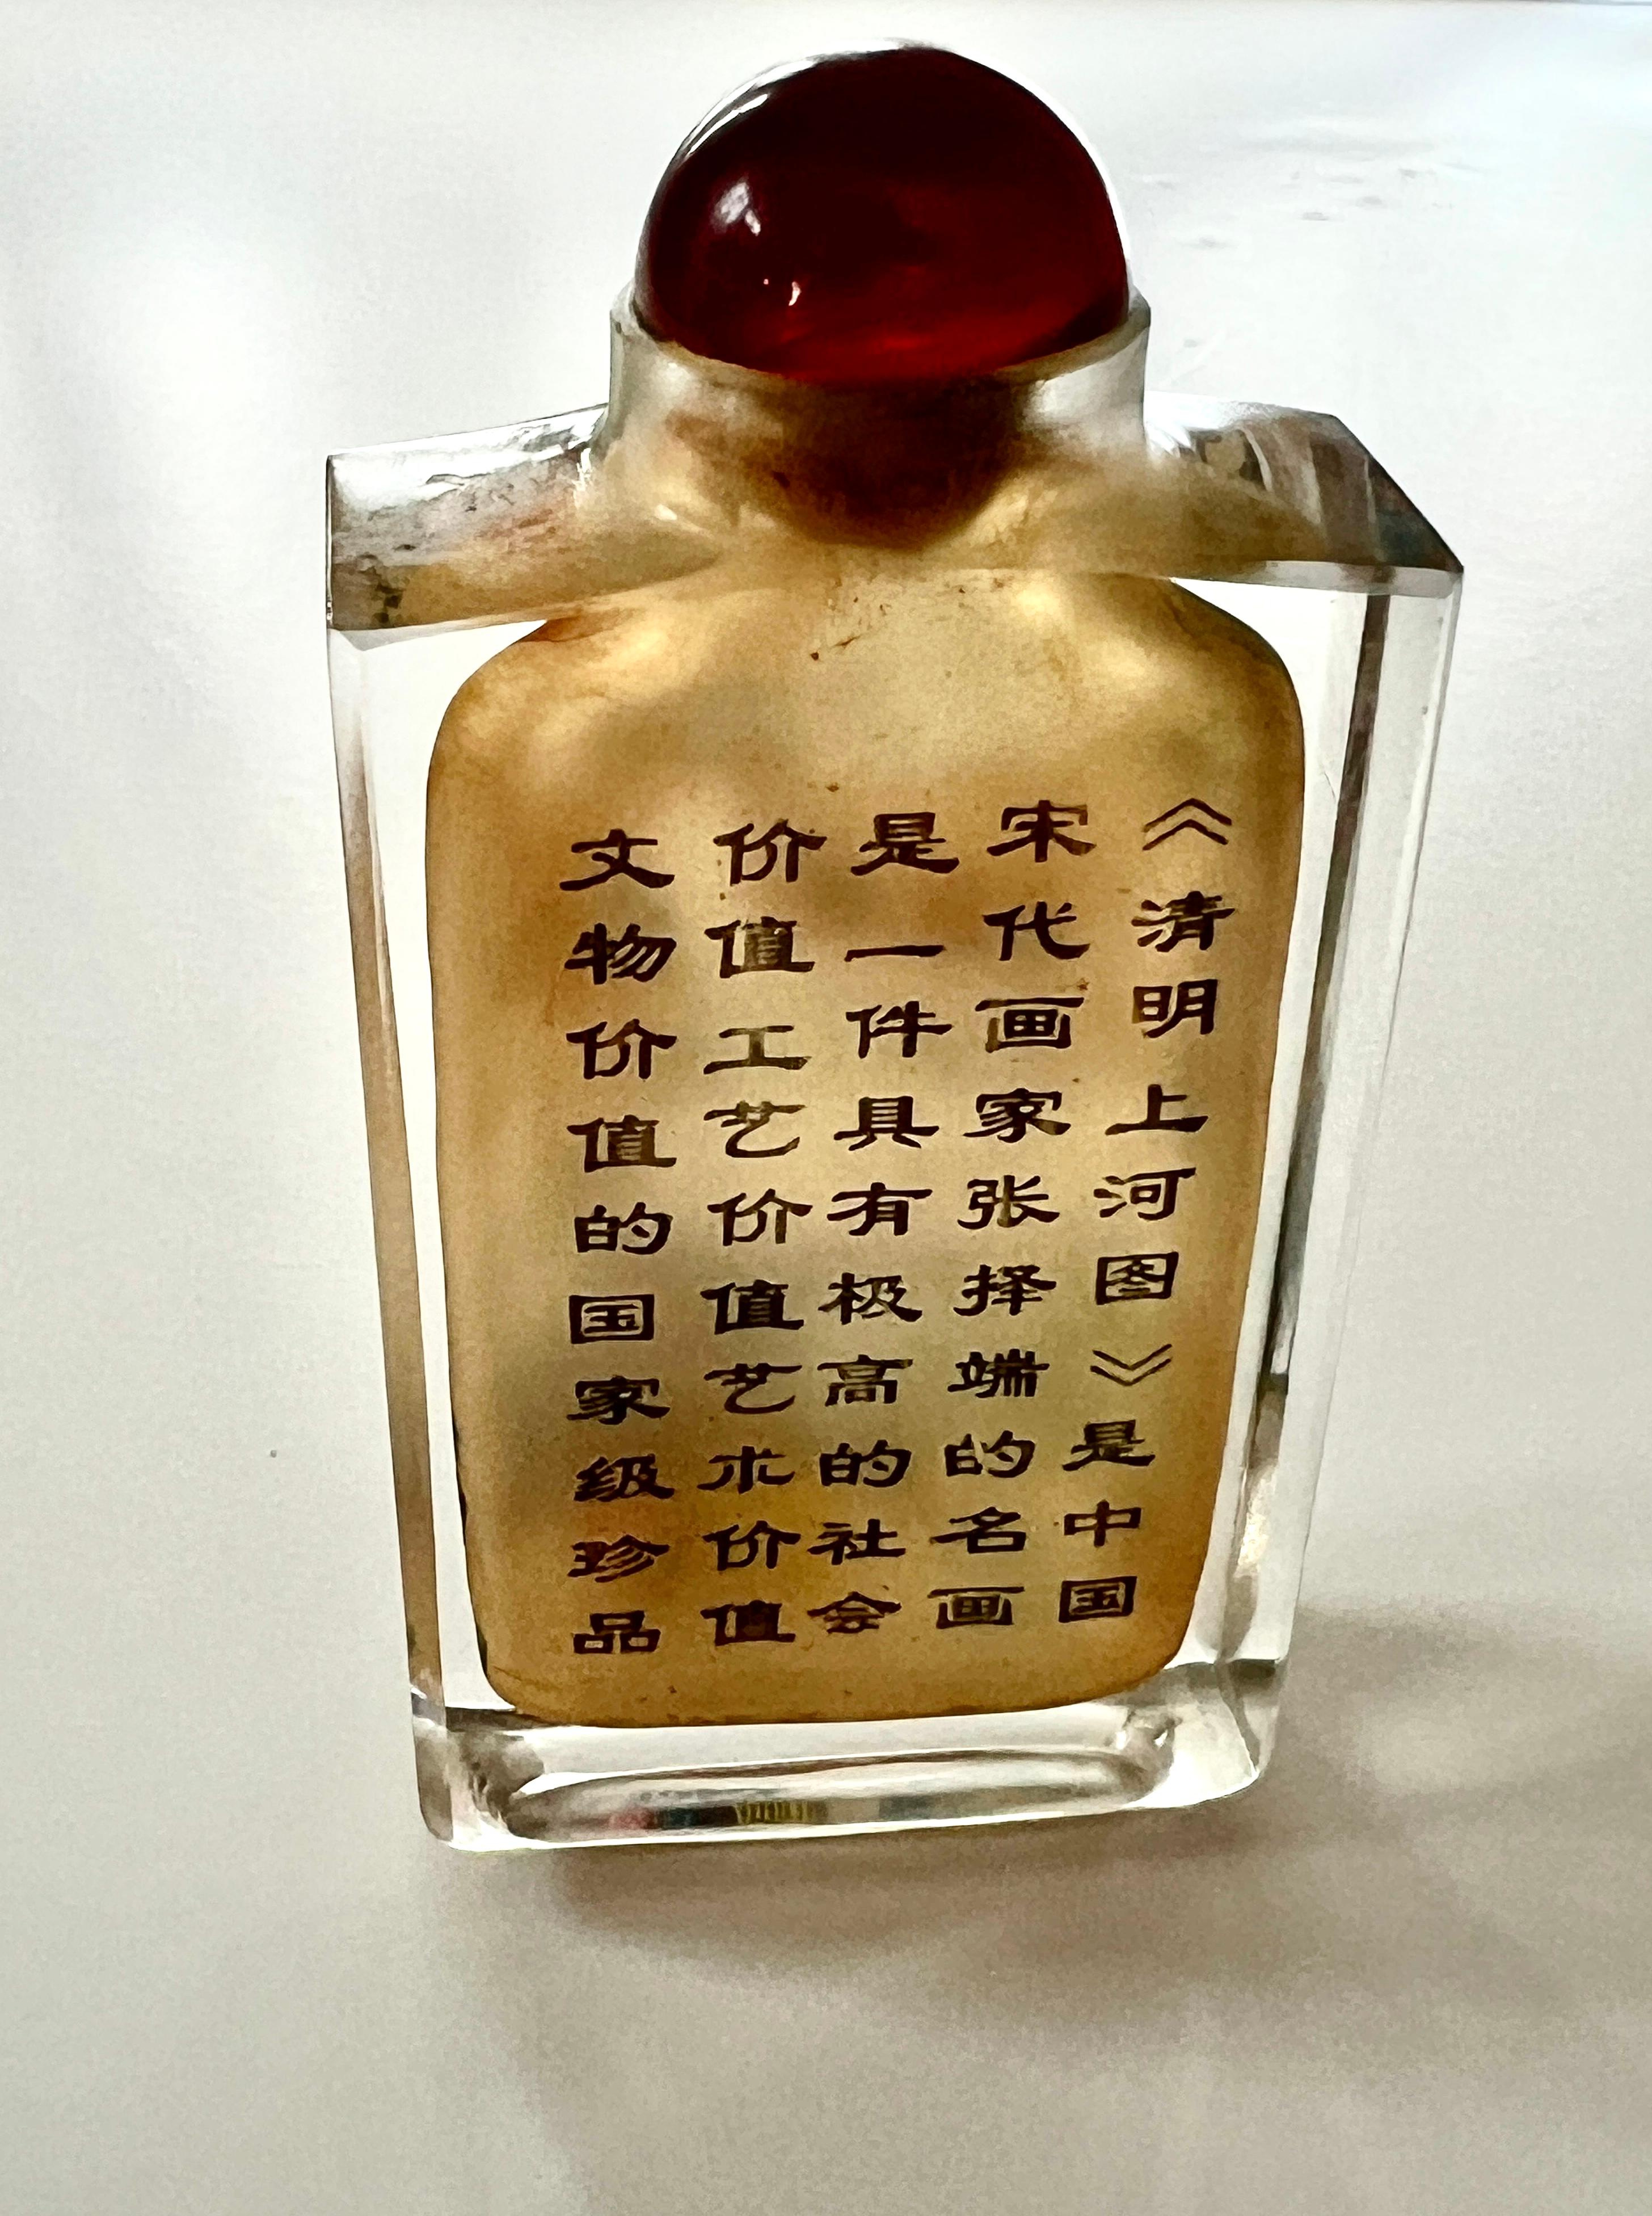 《清明上河图》是中国
宋代画家张择端的名画
是一件具有极高的社会
价值工艺价值艺术价值
文物价值的国家级珍品